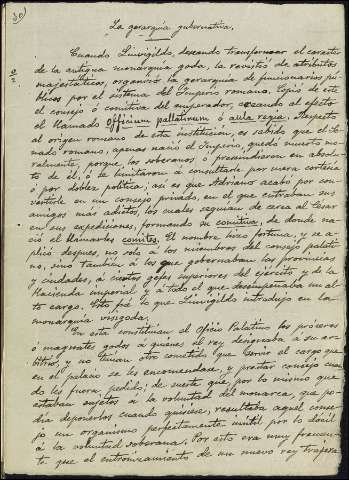 30)
La gerarquía gubernativa.
Cuando Liuvigildo, deseando transformar el carácter
de la antigua monarquía goda, la revistió de atributos
majestáticos, organizó la gerarquía de funcionarios pú-
blicos por el sistema del Imperio romano. Copió de este
el consejo ó comitiva del emperador, creando al efecto
el llamado officium pallatinum ó aula regia. Respecto
al origen romano de esta institución, es sabido que el Se-
nado romano, apenas nació el Imperio, quedó muerto mo-
ralmente, porque los soberanos ó prescindieron en absolu-
to de él, ó se limitaron á consultarle por mera cortesía
ó por doblez política; así es que Adriano acabó por con-
vertirle en un consejo privado, en el que entraban sus
amigos más adictos, los cuales seguían de cerca al Cesar
en sus expediciones, formando su comitiva, de donde na-
ció el llamarles comites. El nombre hizo fortuna, y se a-
plicó después, no solo á los miembros del consejo palati-
no, sino también á los que gobernaban las provincias
y ciudades, á ciertos gefes superiores del ejército y de la
Hacienda imperial y á todo el que desempeñaba un al-
to cargo. Esto fué lo que Liuvigildo introdujo en la
monarquía visigoda.
En esta constituían el Oficio Palatino los próceres
ó magnates godos á quienes el rey designaba á su ar-
bitrio, y no tenían otro cometido que servir el cargo que
en el palacio se les encomendase, y prestar consejo cuan-
do les fuera pedido; de suerte que, por lo mismo que
estaban sujetos á la voluntad del monarca, que po-
día deponerlos cuando quisiese, resultaba aquel conse-
jo un organismo perfectamente inútil por lo dócil
á la voluntad soberana. Por esto era muy frecuen-
te que el entronizamiento de un nuevo rey trajera